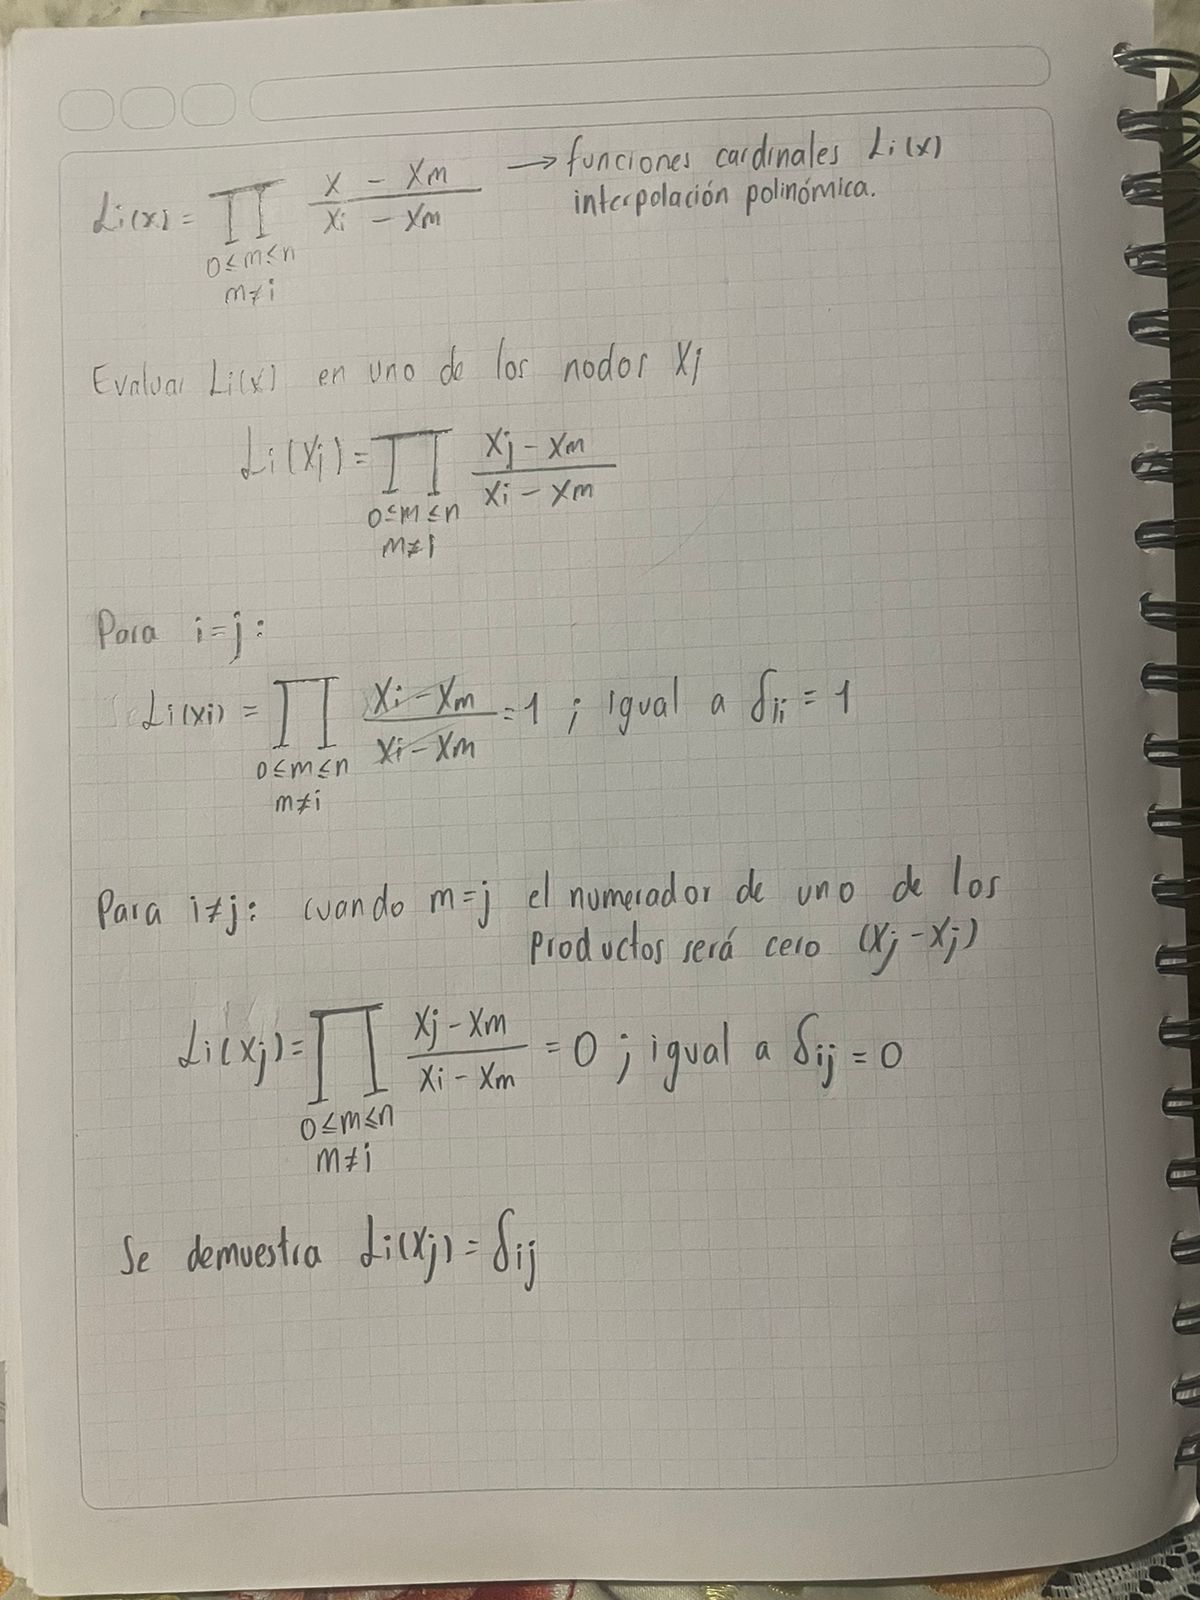 Li(x) = ∏ (x - xm)/(xi - xm) → funciones cardinales Li(x)
interpolación polinómica.
0 ≤ m ≤ n
m ≠ i
Evaluar Li(x) en uno de los nodos xj
Li(xj) = ∏ (xj - xm)/(xi - xm)
0 ≤ m ≤ n
m ≠ i
Para i = j :
Li(xi) = ∏ (xi - xm)/(xi - xm) = 1 ; igual a δii = 1
0 ≤ m ≤ n
m ≠ i
Para i ≠ j : cuando m = j el numerador de uno de los
productos será cero (xj - xj)
Li(xj) = ∏ (xj - xm)/(xi - xm) = 0 ; igual a δij = 0
0 ≤ m ≤ n
m ≠ i
Se demuestra Li(xj) = δij